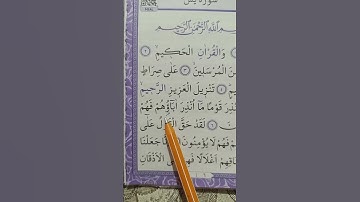 سورة يس
بسم الله الرحمن الرحيم
وَالْقُرْاٰنِ الْحَكٖيمِ
الْمُرْسَلٖينَ ٣ عَلٰى صِرَاطٍ
تَنْزٖيلَ الْعَزٖيزِ الرَّحٖيمِ
قَوْمًا مَٓا اُنْذِرَ اٰبَٓاؤُ۬هُمْ فَهُمْ
لَقَدْ حَقَّ الْقَوْلُ عَلٰٓى
فَهُمْ لَا يُؤْمِنُونَ ٧ جَعَلْنَا
اَغْلَالًا الْاَذْقَانِ